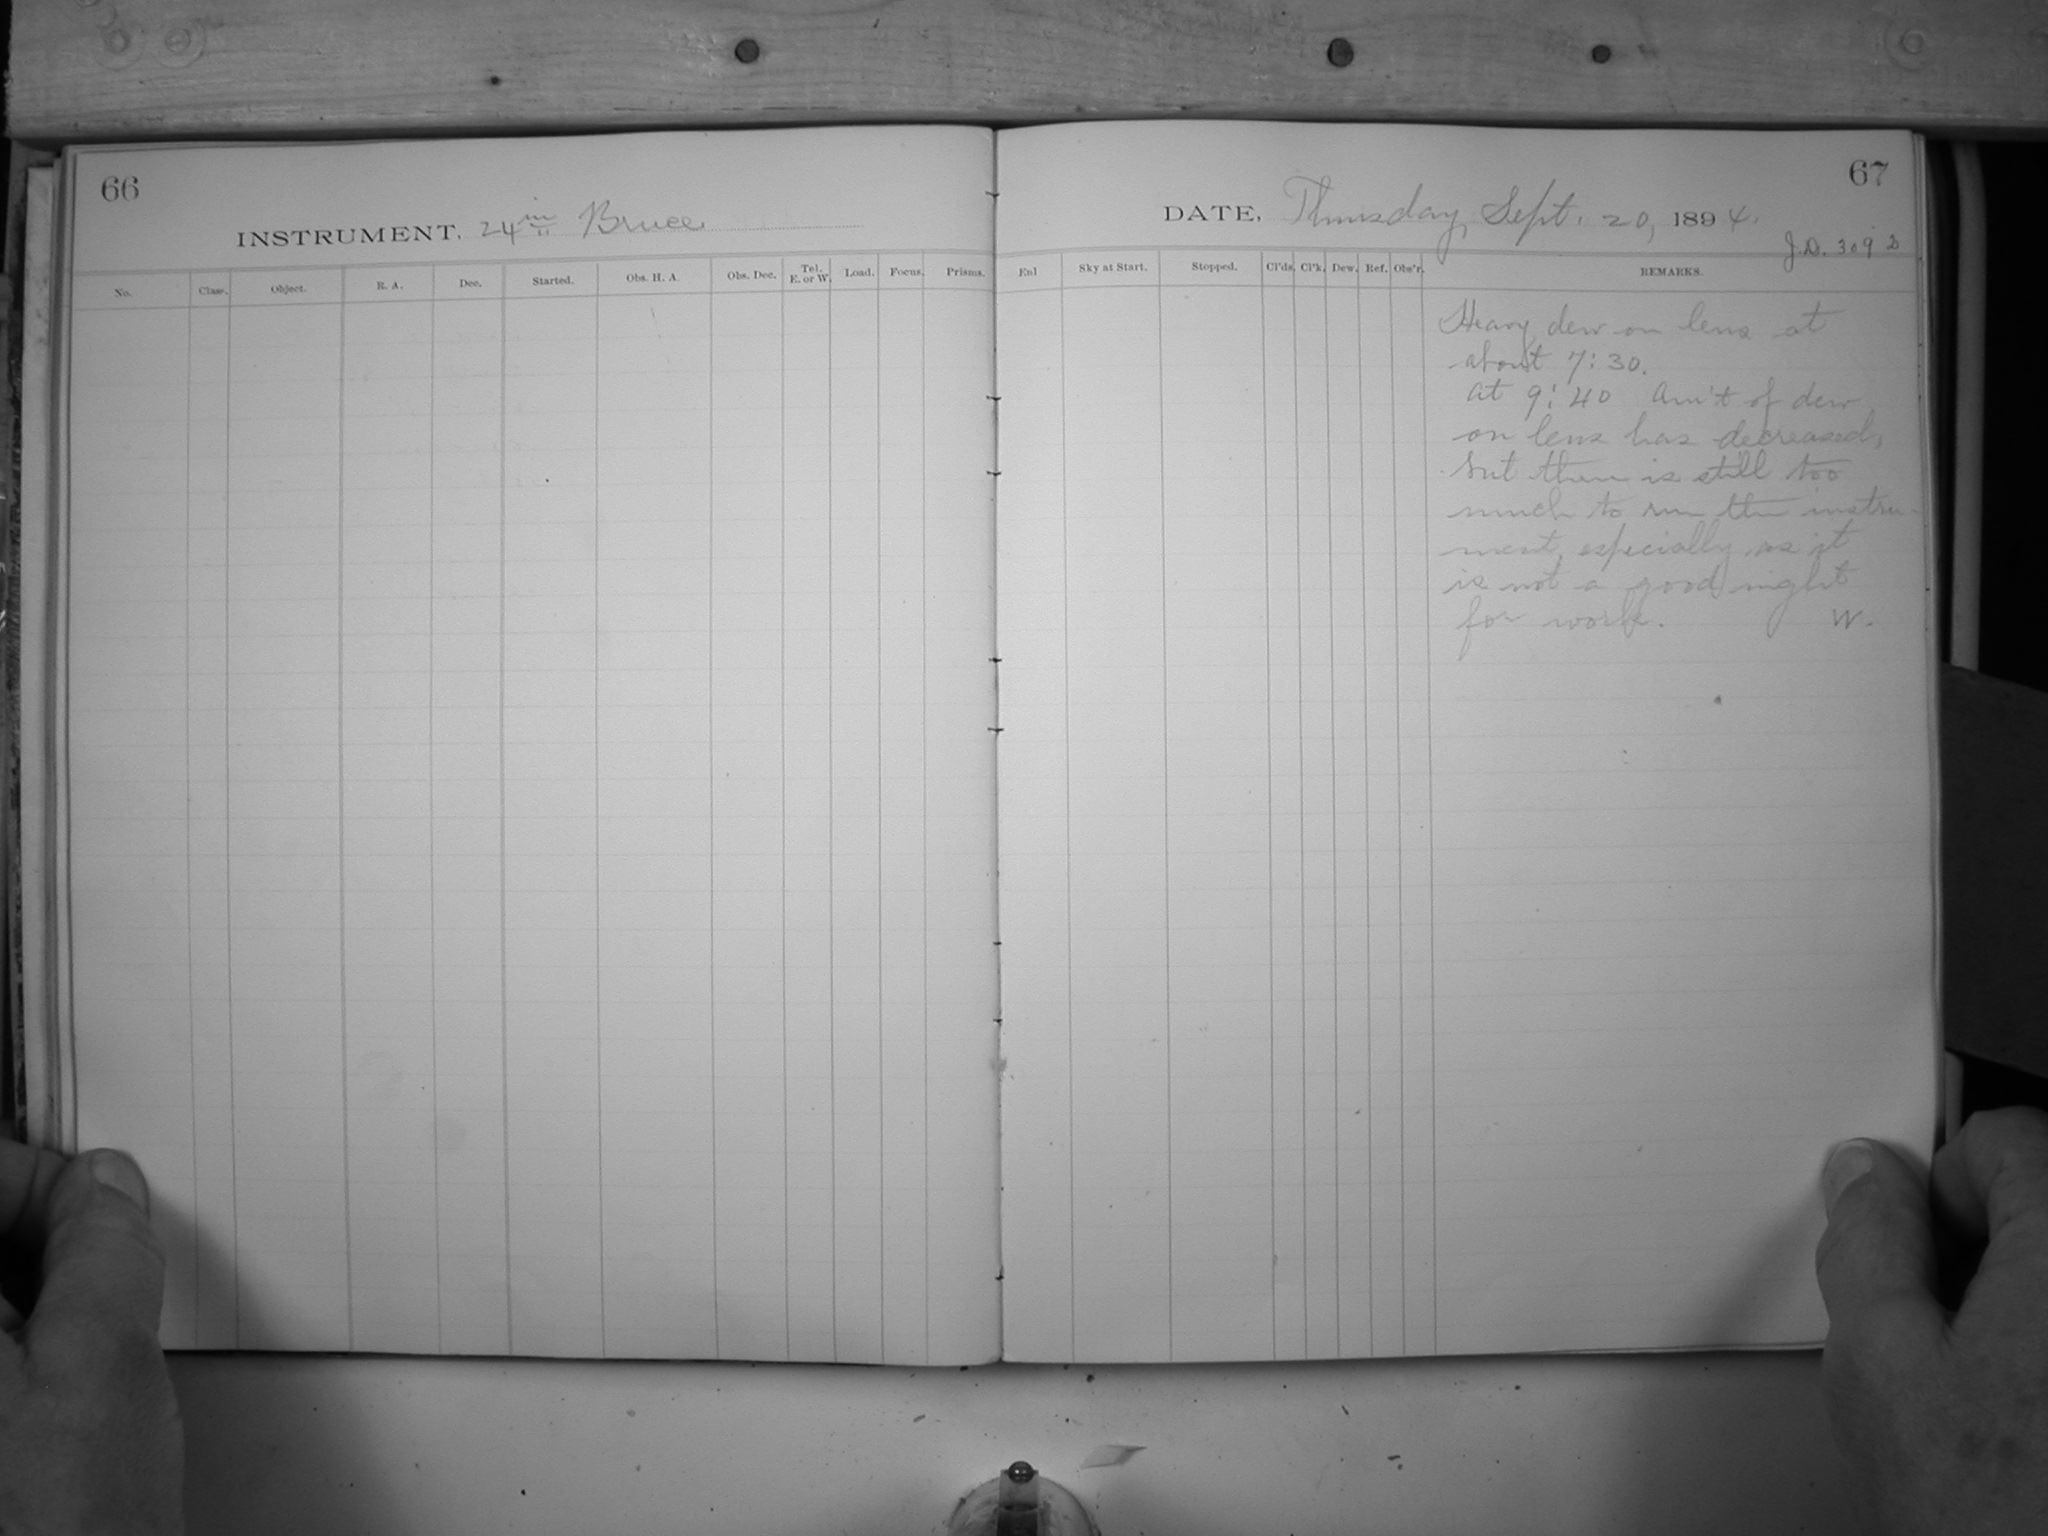 66
INSTRUMENT. 24 in Bruce
No. Class. Object. R. A. Dec. Started. Obs. H. A. Obs. Dec. Tel. E. or W. Load. Focus. Prisms.
67
DATE, Thursday, Sept. 20, 1894.
J.D. 309 2
Enl Sky at Start. Stopped. Cl'ds. Cl'k. Dew. Ref. Obs'r. REMARKS.
Heavy dew on lens at
about 7:30.
At 9:40 Am't of dew
on lens has decreased,
but there is still too
much to run the instru-
ment, especially as it
is not a good night
for work. W.